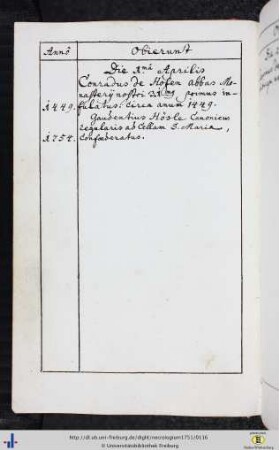 Anno Obierunt
Die 1mi Aprilis
Conradus de Hofen abbas Mo-
nasterij nostri primus in-
1449. fulatus: circa annum 1449.
Gaudentius Hösle Canonicus
regularis ad Cellam S. Mariæ,
1754. Confœderatus.
http://dl.ub.uni-freiburg.de/diglit/necrologium1751/0116
© Universitätsbibliothek Freiburg